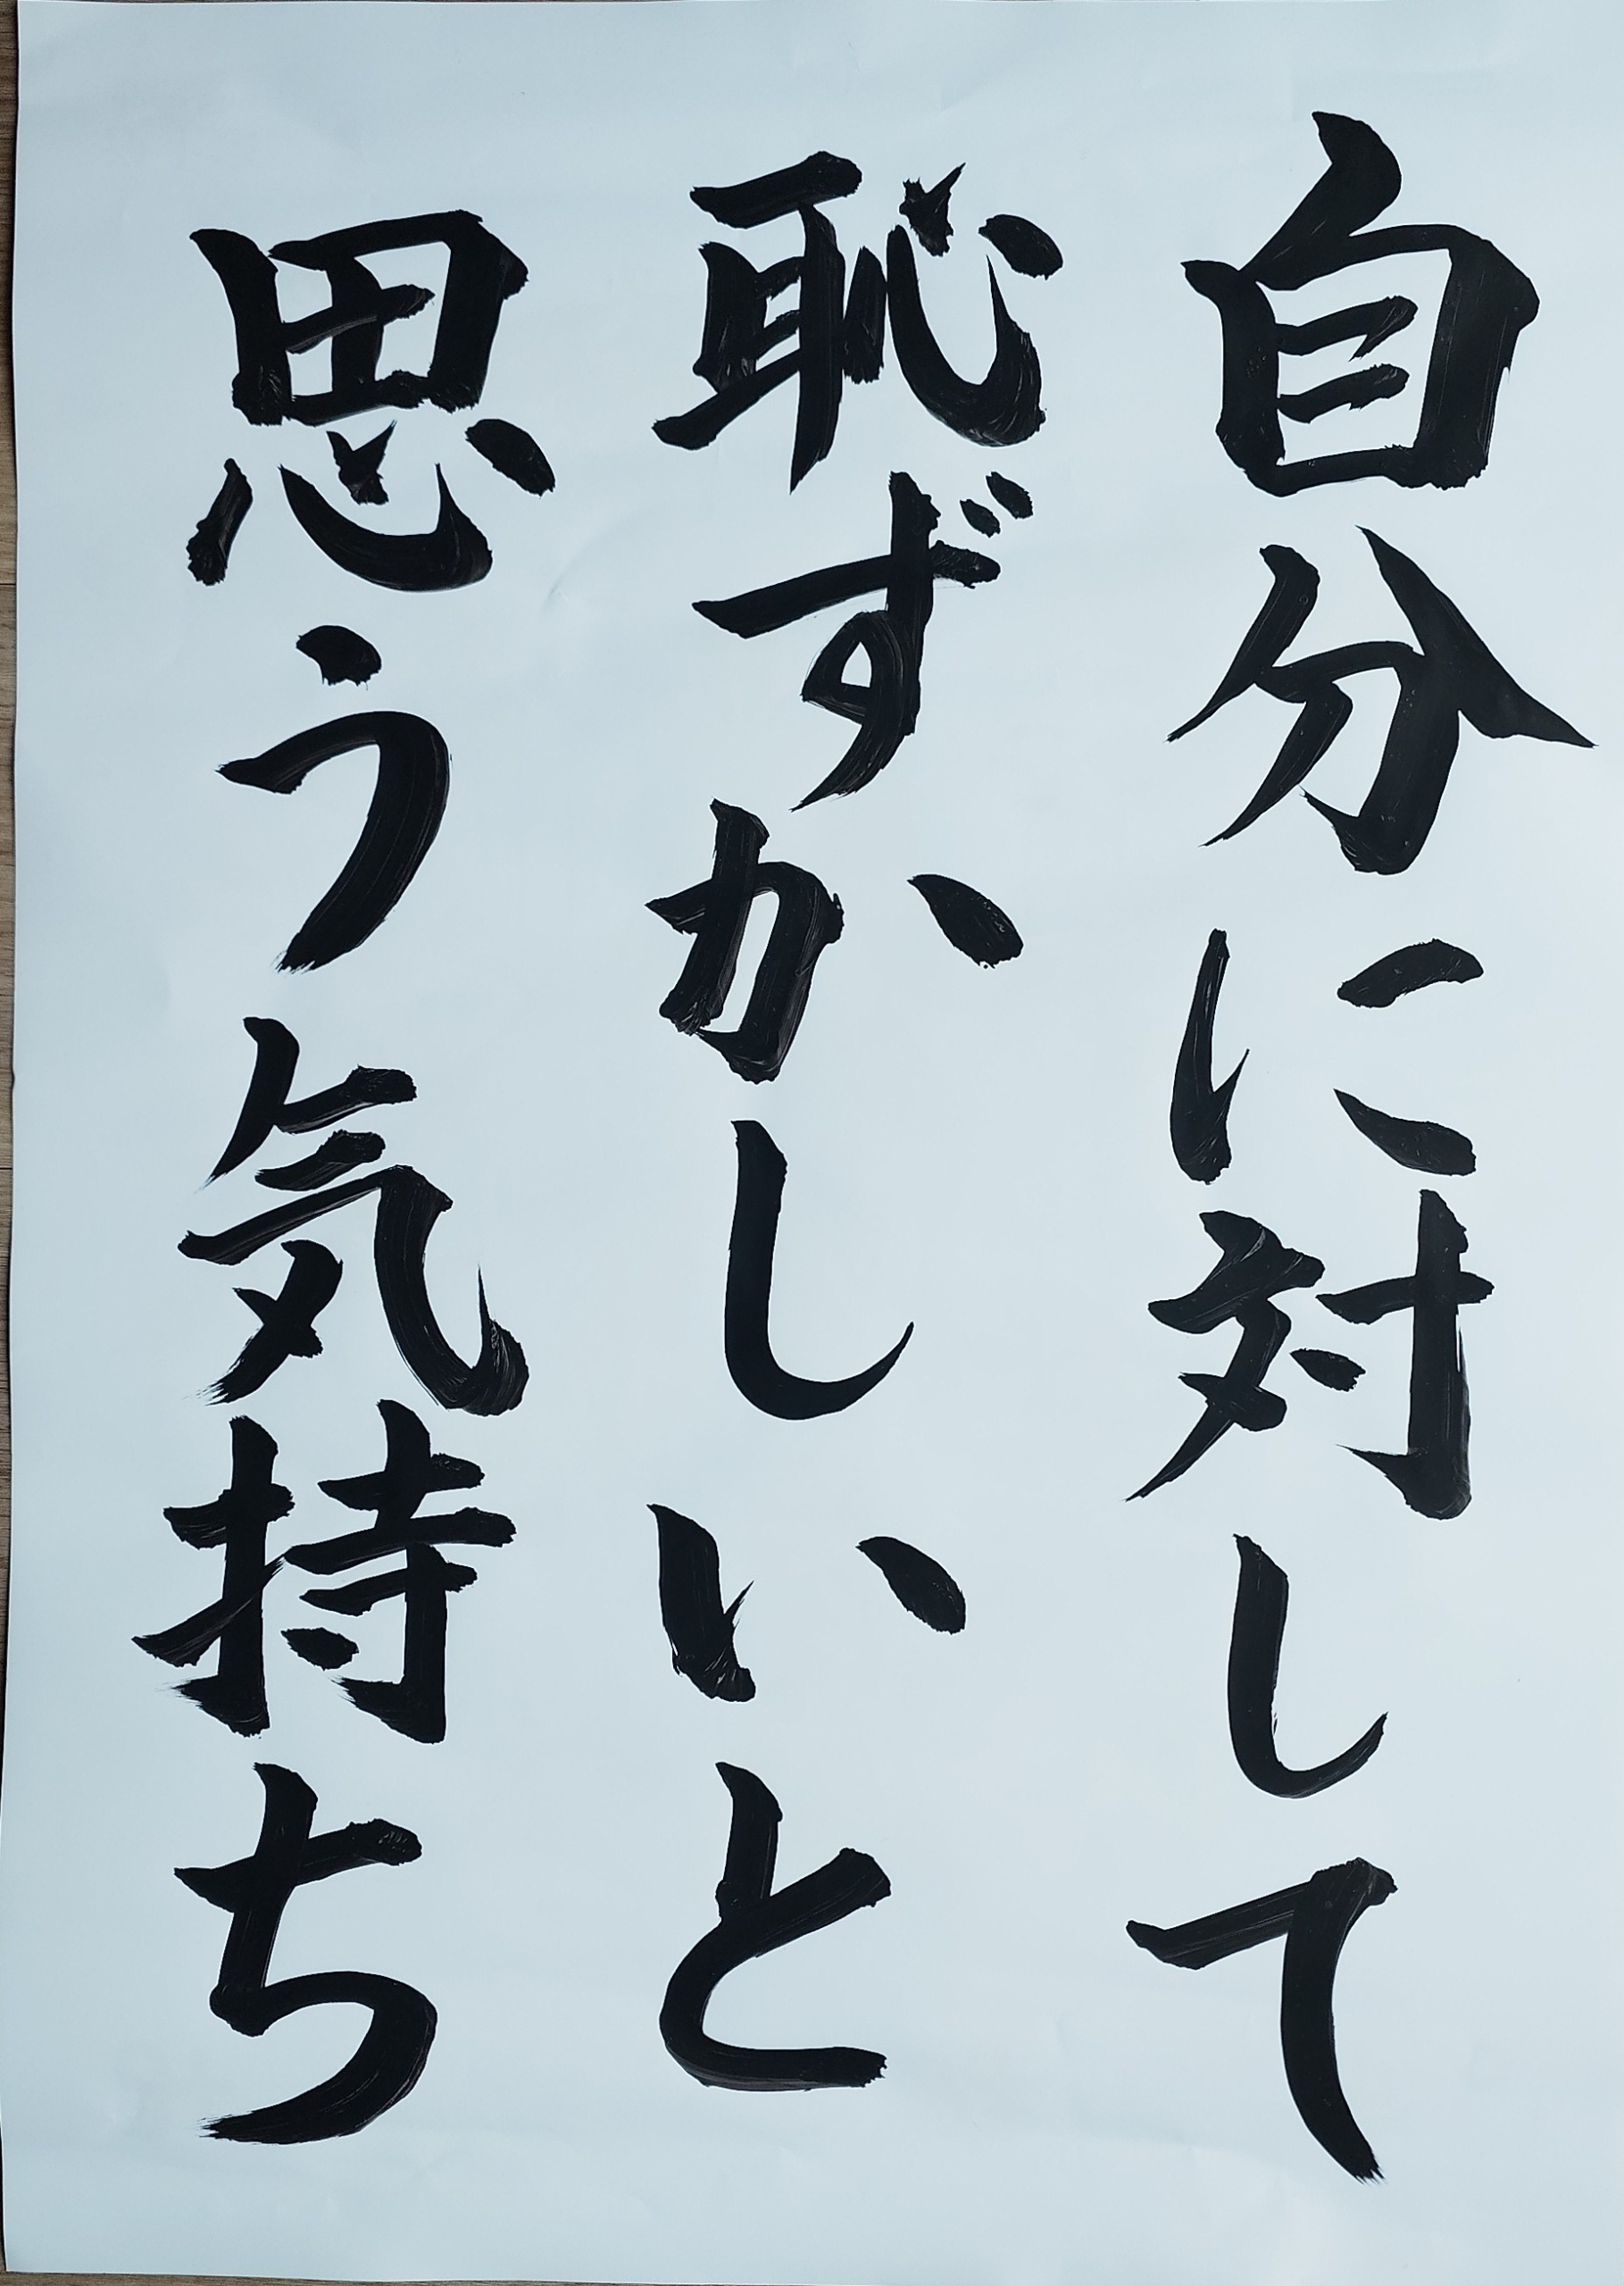 自分に対して
恥ずかしいと
思う気持ち